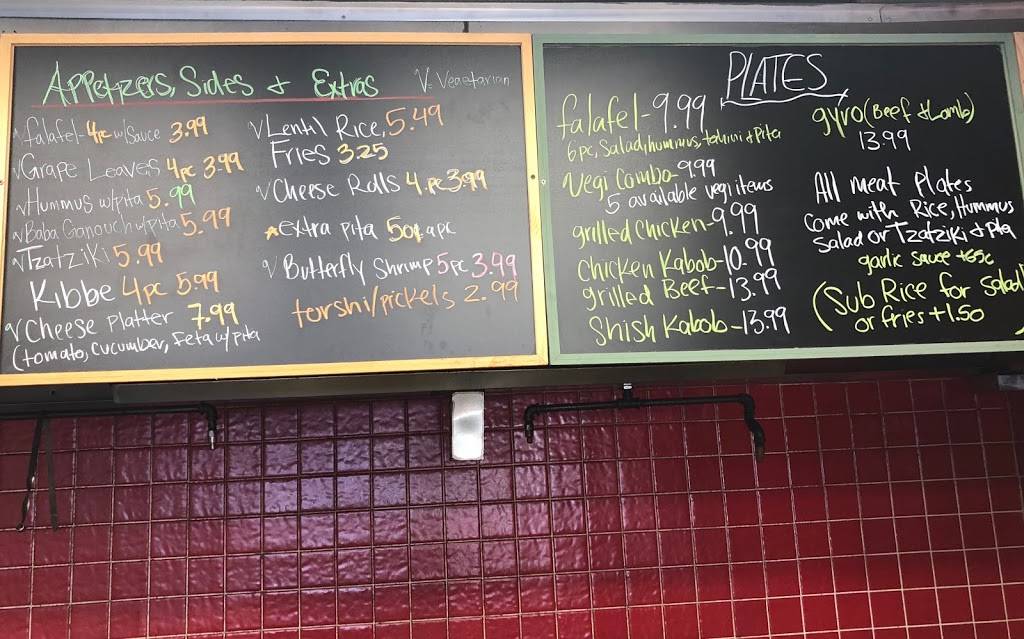 Appetizers, Sides & Extras
V= Vegetarian
√ falafel- 4pc w/Sauce 3.99
√ Grape Leaves 4pc 3.99
√ Hummus w/pita 5.99
√ Baba Ganouch w/pita 5.99
√ Tzatziki 5.99
Kibbe 4pc 5.99
√ Cheese Platter 7.99
(tomato, cucumber, Feta w/pita
√ Lentil Rice, 5.49
Fries 3.25
√ Cheese Rolls 4.pc 3.99
★ extra pita 50¢ a pc
√ Butterfly Shrimp 5pc 3.49
torshi/pickels 2.99
PLATES
falafel-9.99
6pc, Salad, hummus, tahini & Pita
Vegi Combo- 9.99
5 available vegi items
grilled Chicken-9.99
Chicken Kabob-10.99
grilled Beef-13.99
Shish Kabob-13.99
gyro (Beef & Lamb)
13.99
All meat Plates
Come with Rice, Hummus
Salad or Tzatziki & pita
garlic sauce +65¢
(Sub Rice for Salad)
or fries +1.50